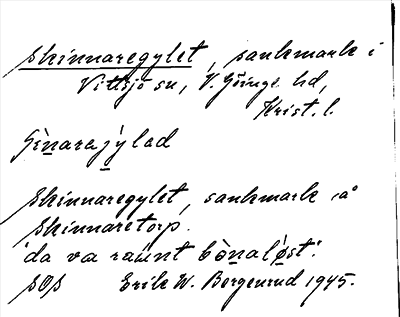 Skinnaregylet, sankmark i
Vittsjö sn, V. Göinge hd,
Krist. l.
Skinnaregylet, sankmark å
Skinnaretorp.
"da va raunt bònaløst".
SOS Erik W. Bergenrud 1945.